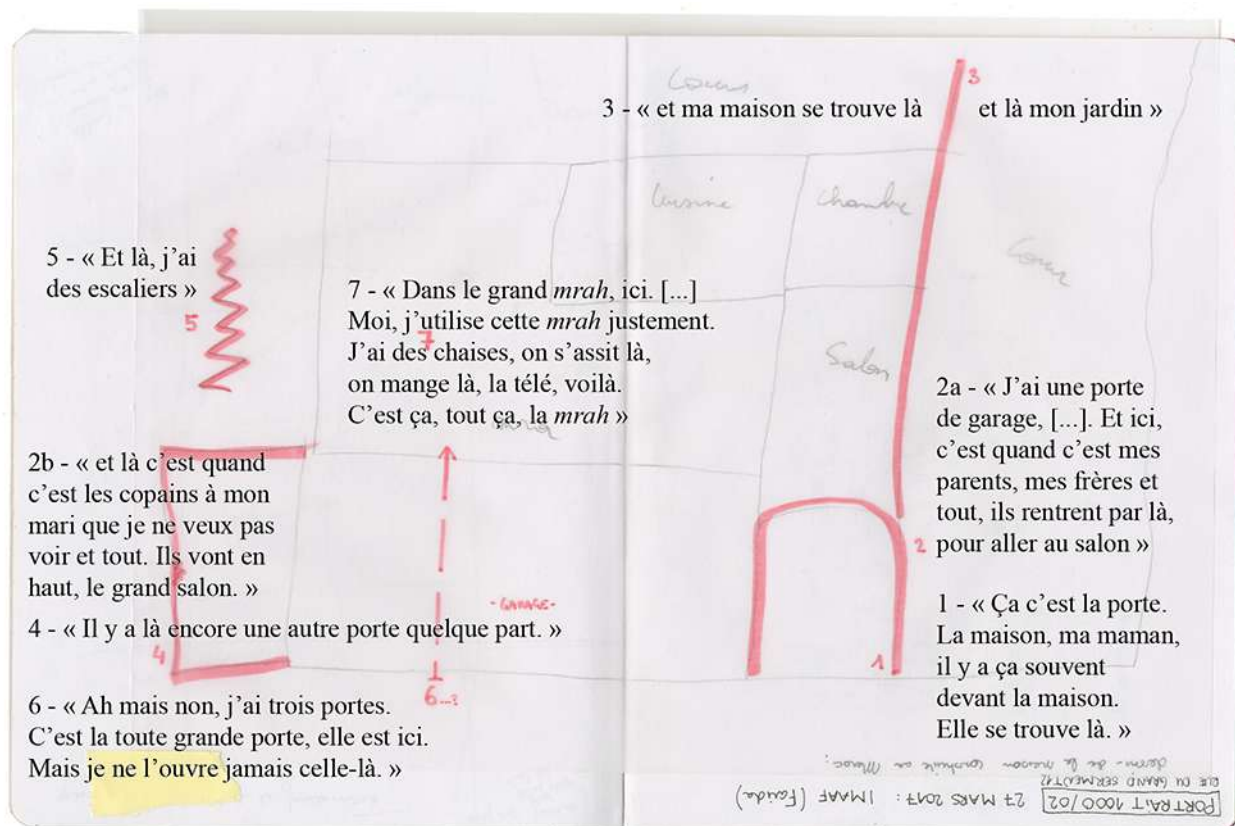 Cour
3
3 - « et ma maison se trouve là et là mon jardin »
Cuisine
Chambre
Cour
5 - « Et là, j’ai
des escaliers »
5
7 - « Dans le grand mrah, ici. [...]
Moi, j’utilise cette mrah justement.
7
J’ai des chaises, on s’assit là,
on mange là, la télé, voilà.
C’est ça, tout ça, la mrah »
Salon
2a - « J’ai une porte
de garage, [...]. Et ici,
c’est quand c’est mes
parents, mes frères et
tout, ils rentrent par là,
pour aller au salon »
2
2b - « et là c’est quand
c’est les copains à mon
mari que je ne veux pas
voir et tout. Ils vont en
haut, le grand salon. »
-GARAGE-
4 - « Il y a là encore une autre porte quelque part. »
4
1 - « Ça c’est la porte.
La maison, ma maman,
il y a ça souvent
devant la maison.
Elle se trouve là. »
1
6 - « Ah mais non, j’ai trois portes.
C’est la toute grande porte, elle est ici.
Mais je ne l’ouvre jamais celle-là. »
6...?
PORTRAIT 1000/02 27 MARS 2017 : IMAAF (Farida)
RUE DU GRAND SERMENT 12
dessin de la maison construite au Maroc :